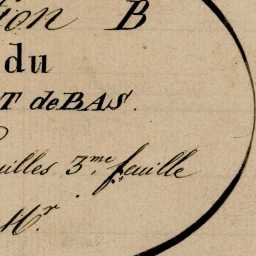 tion B
du
T de BAS.
uilles 3.me feuille
Mr.